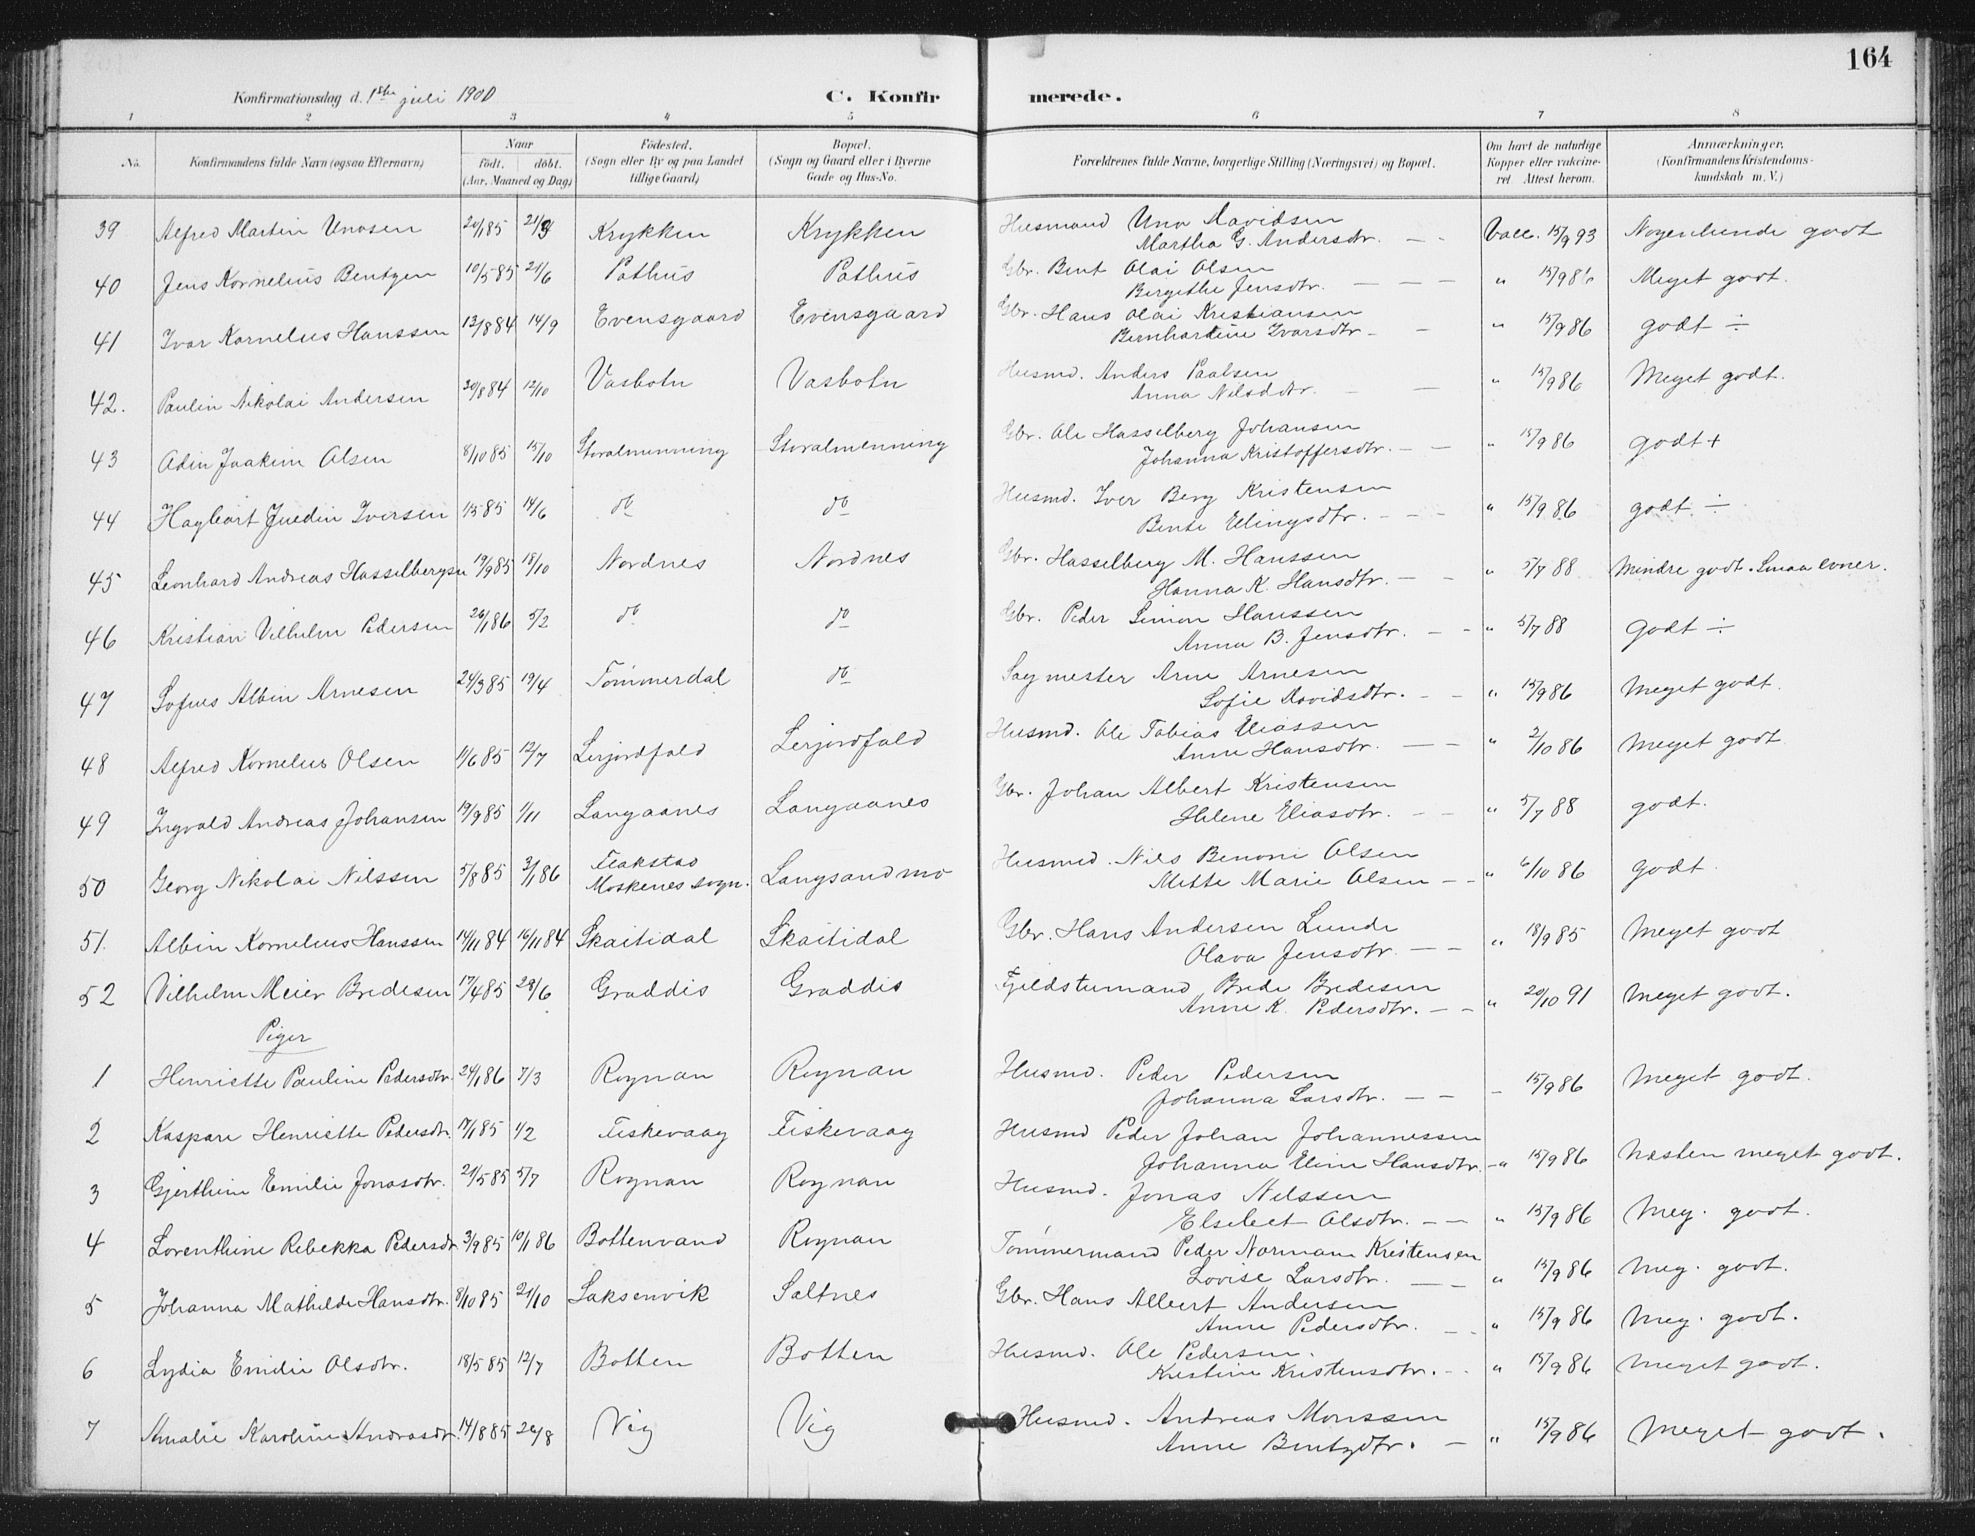 164
Konfirmationsdag d. 1ste juli 1900 C. Konfirmerede.
1 2 3 4 5 6 7 8
No. Konfirmandens fulde Navn (ogsaa Efternavn) Naar født. døbt. (Aar, Maaned og Dag) Fødested. (Sogn eller By og paa Landet tillige Gaard) Bopæl. (Sogn og Gaard eller i Byerne Gade og Hus-No. Forældrenes fulde Navne, borgerlige Stilling (Næringsvei) og Bopæl. Om havt de naturlige Kopper eller vakcineret. Attest herom. Anmærkninger, (Konfirmandens Kristendomskundskab m. V.)
39 Alfred Martin Unosen 20/1 85 21/3 Krykken Krykken Husmand Uno Davidsen
Martha G. Andersdtr. — - Vacc. 15/9 93 Nogenlunde godt
40 Jens Kornelius Bentzen 10/5 85 21/6 Pothus Pothus Gbr. Bent Olai Olsen
Bergithe Jensdtr. — — — " 15/9 86 Meget godt.
41 Ivar Kornelius Hanssen 13/8 84 14/9 Evensgaard Evensgaard Gbr. Hans Olai Kristiansen
Bernhardine Ivarsdtr — — " 15/9 86 godt ÷
42. Paulin Nikolai Andersen 30/8 84 12/10 Vasbotn Vasbotn Husmd. Anders Paalsen
Anna Nilsdtr. — — " 15/9 86 Meget godt.
43 Odin Joakim Olsen 8/10 85 15/10 Storalmenning Storalmenning Gbr. Ole Hasselberg Johansen
Johanna Kristoffersdtr. — — " 15/9 86 godt +
44 Hagbart Juedin Iversen 1/5 85 14/6 do do Husmd. Iver Berg Kristensen
Bente Ellingsdtr. - - - " 15/9 86 godt ÷
45 Leonhard Andreas Hasselbergsen 19/9 85 18/10 Nordnes Nordnes Gbr. Hasselberg M. Hanssen
Hanna K. Hansdtr. — - " 5/7 88 Mindre godt. Smaa evner.
46 Kristian Vilhelm Pedersen 26/1 86 5/2 do do Gbr. Peder Simon Hanssen
Anna B. Jensdtr. — - " 5/7 88 godt ÷
47 Sofus Albin Arnesen 24/3 85 19/4 Tømmerdal do Sagmester Arne Arnesen
Sofie Davidsdtr. - — " 15/9 86 Meget godt.
48 Alfred Kornelius Olsen 11/6 85 12/7 Lerjordfald Lerjordfald Husmd. Ole Tobias Eliassen
Anne Hansdtr. — — " 2/10 86 Meget godt
49 Ingvald Andreas Johansen 19/9 85 1/11 Langaanes Langaanes Gbr. Johan Albert Kristensen
Helene Eliasdtr. — — " 5/7 88 godt.
50 Georg Nikolai Nilssen 5/8 85 3/1 86 Flakstad
Moskenes sogn. Langsandmo Husmd. Nils Benoni Olsen
Mette Marie Olsen — - " 6/10 86 godt.
51. Albin Kornelius Hanssen 14/11 84 16/11 84 Skaitidal Skaitidal Gbr. Hans Andersen Lunde
Olava Jensdtr. — — " 18/9 85 Meget godt
52 Vilhelm Meier Bredesen 17/4 85 28/6 Graddis Graddis Fjeldstuemand Brede Bredesen
Anne K. Pedersdtr. — - " 20/10 91 Meget godt.
Piger
1 Henriette Pauline Pedersdtr. 24/1 86 7/3 Rognan Rognan Husmd. Peder Pedersen
Johanna Larsdtr. — — - 15/9 86 Meget godt.
2 Kaspara Henriette Pedersdtr. 17/1 85 1/2 Fiskevaag Fiskevaag Husmd Peder Johan Johannessen
Johanna Eline Hansdtr. - " 15/9 86 Næsten meget godt.
3 Gjerthine Emilie Jonasdtr. 21/5 85 5/7 Rognan Rognan Husmd. Jonas Nilssen
Elsebet Olsdtr. — — " 15/9 86 Meg. godt.
4 Lorenthine Rebekka Pedersdtr 3/9 85 10/1 86 Bottenvand Rognan Tømmermand Peder Normann Kristensen
Lovise Larsdtr. — — " 15/9 86 Meg. godt.
5 Johanna Mathilde Hansdtr. 8/10 85 21/10 Saksenvik Saltnes Gbr. Hans Albert Andersen
Anne Pedersdtr. — - " 15/9 86 Meg. godt.
6 Lydia Emilie Olsdtr. 18/5 85 12/7 Botten Botten Husmd. Ole Pedersen.
Kristine Kristensdtr. - - " 15/9 86 Meget godt.
7 Amalie Karoline Andreasdtr. 14/8 85 20/8 Vig Vig Husmd. Andreas Monssen
Anne Bentzdtr. — " 15/9 86 Meget godt.